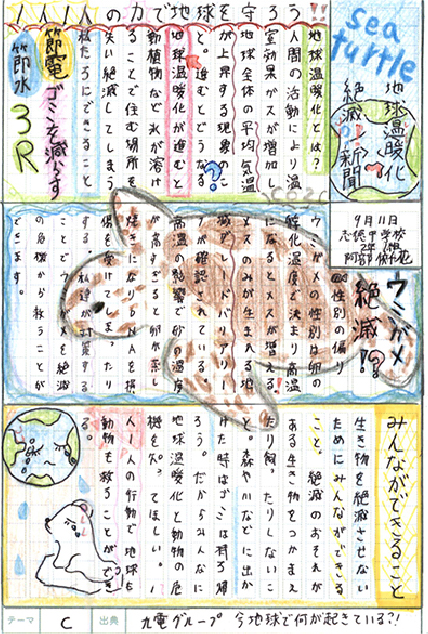 1人1人の力で地球を守ろう!!
sea turtle
地球温暖化
絶滅!?新聞
9月11日
志徳中学校
地球温暖化とは?
人間の活動により温
室効果ガスが増加し
地球全体の平均気温
が上昇する現象のこ
と。進むとどうなる?
地球温暖化が進むと
動植物など氷が溶け
ることで住む場所を
失い絶滅してしまう
私たちにできること
節電 ゴミを減らす
節水 3R
ウミガメ
絶滅!?
性別の偏り
ウミガメの性別は卵の
孵化温度で決まり高温
になるとメスが増える。
メスのみが生まれる地
域がグレートバリアリー
フが確認されている
高温の影響で砂の温度
が高すぎると卵が蒸し
焼きになり
傷を受け たり
する。私達が対策する
ことでウミガメを絶滅
の危機から救うことが
できます。
みんなができること
生き物を絶滅させない
ためにみんなができる
こと、絶滅のおそれが
ある生き物をつかまえ
たり飼ったりしないこ
と。森や川などに出か
けた時はゴミは持ち帰
ろう。だからみんなに
地球温暖化と動物の危
機を知ってほしい。1
人1人の行動で地球も
動物も救うことができ
る。
テーマ C 出典 九電グループ 今地球で何が起きているこ!